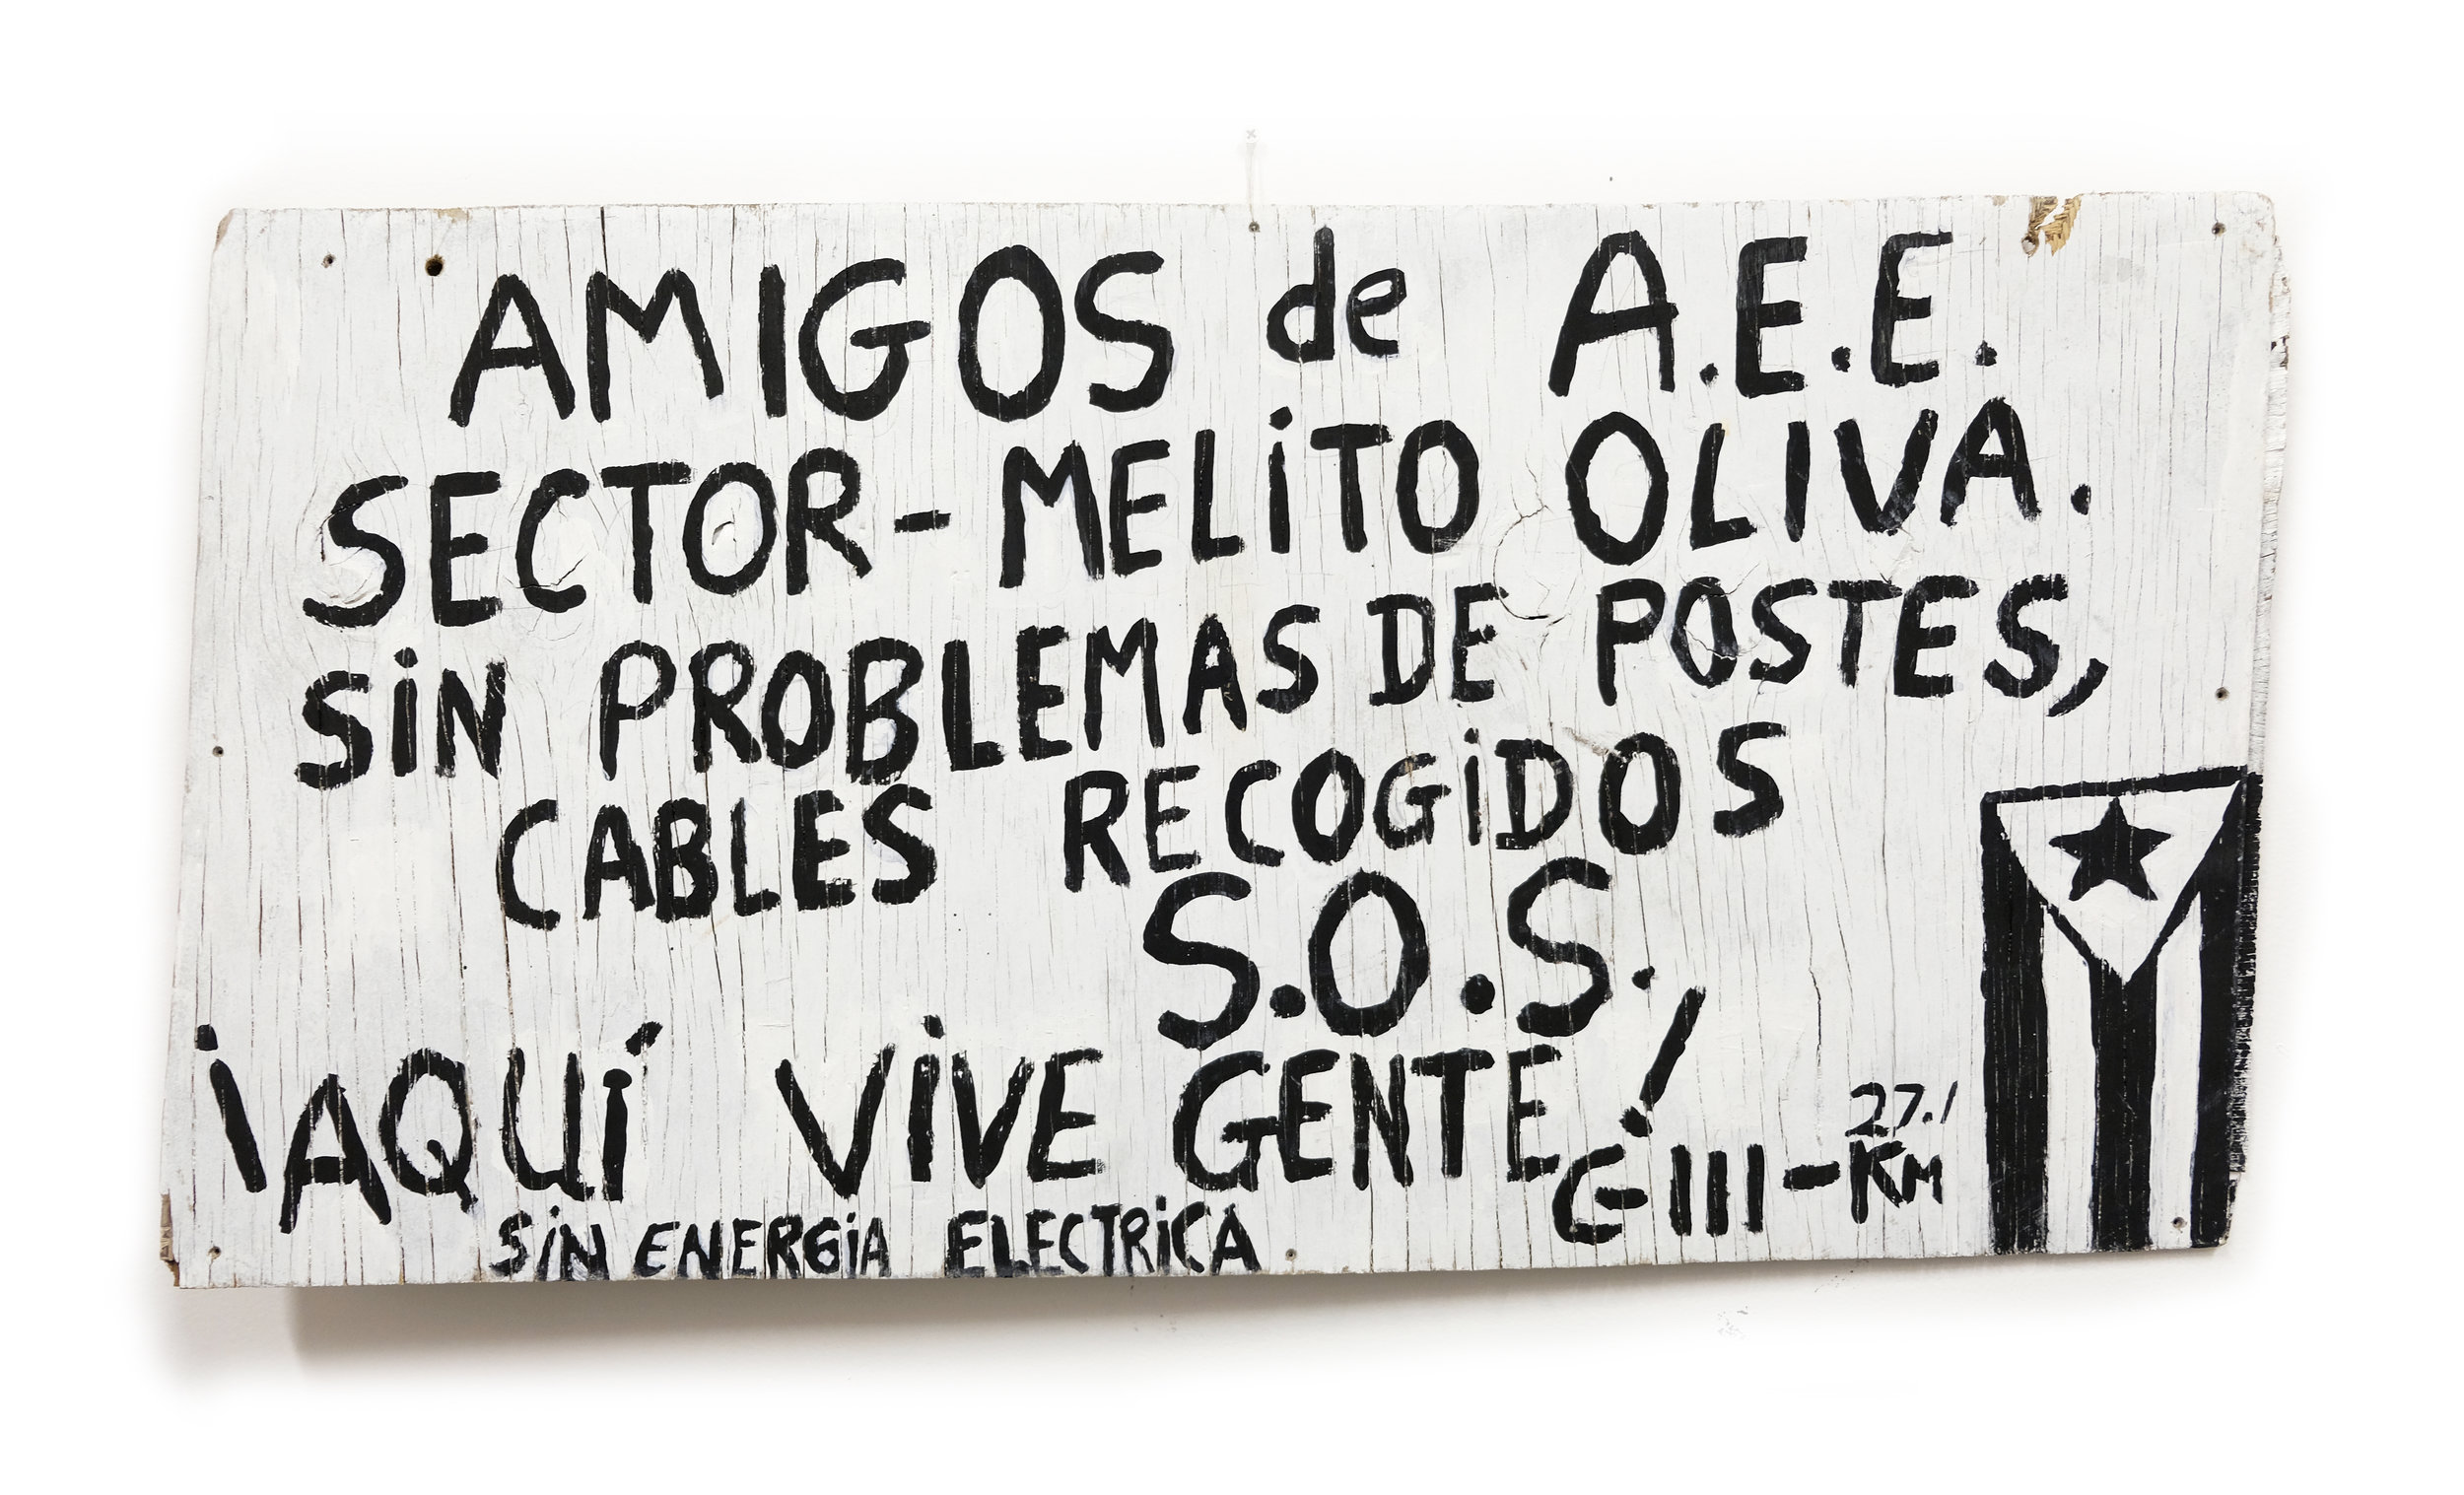 AMIGOS de A.E.E.
SECTOR - MELiTO OLIVA.
SiN PROBLEMAS DE POSTES,
CABLES RECOGiDOS
S.O.S.
¡AQUÍ ViVE GENTE!
27.1
G-III-KM
SiN ENERGiA ELECTRiCA